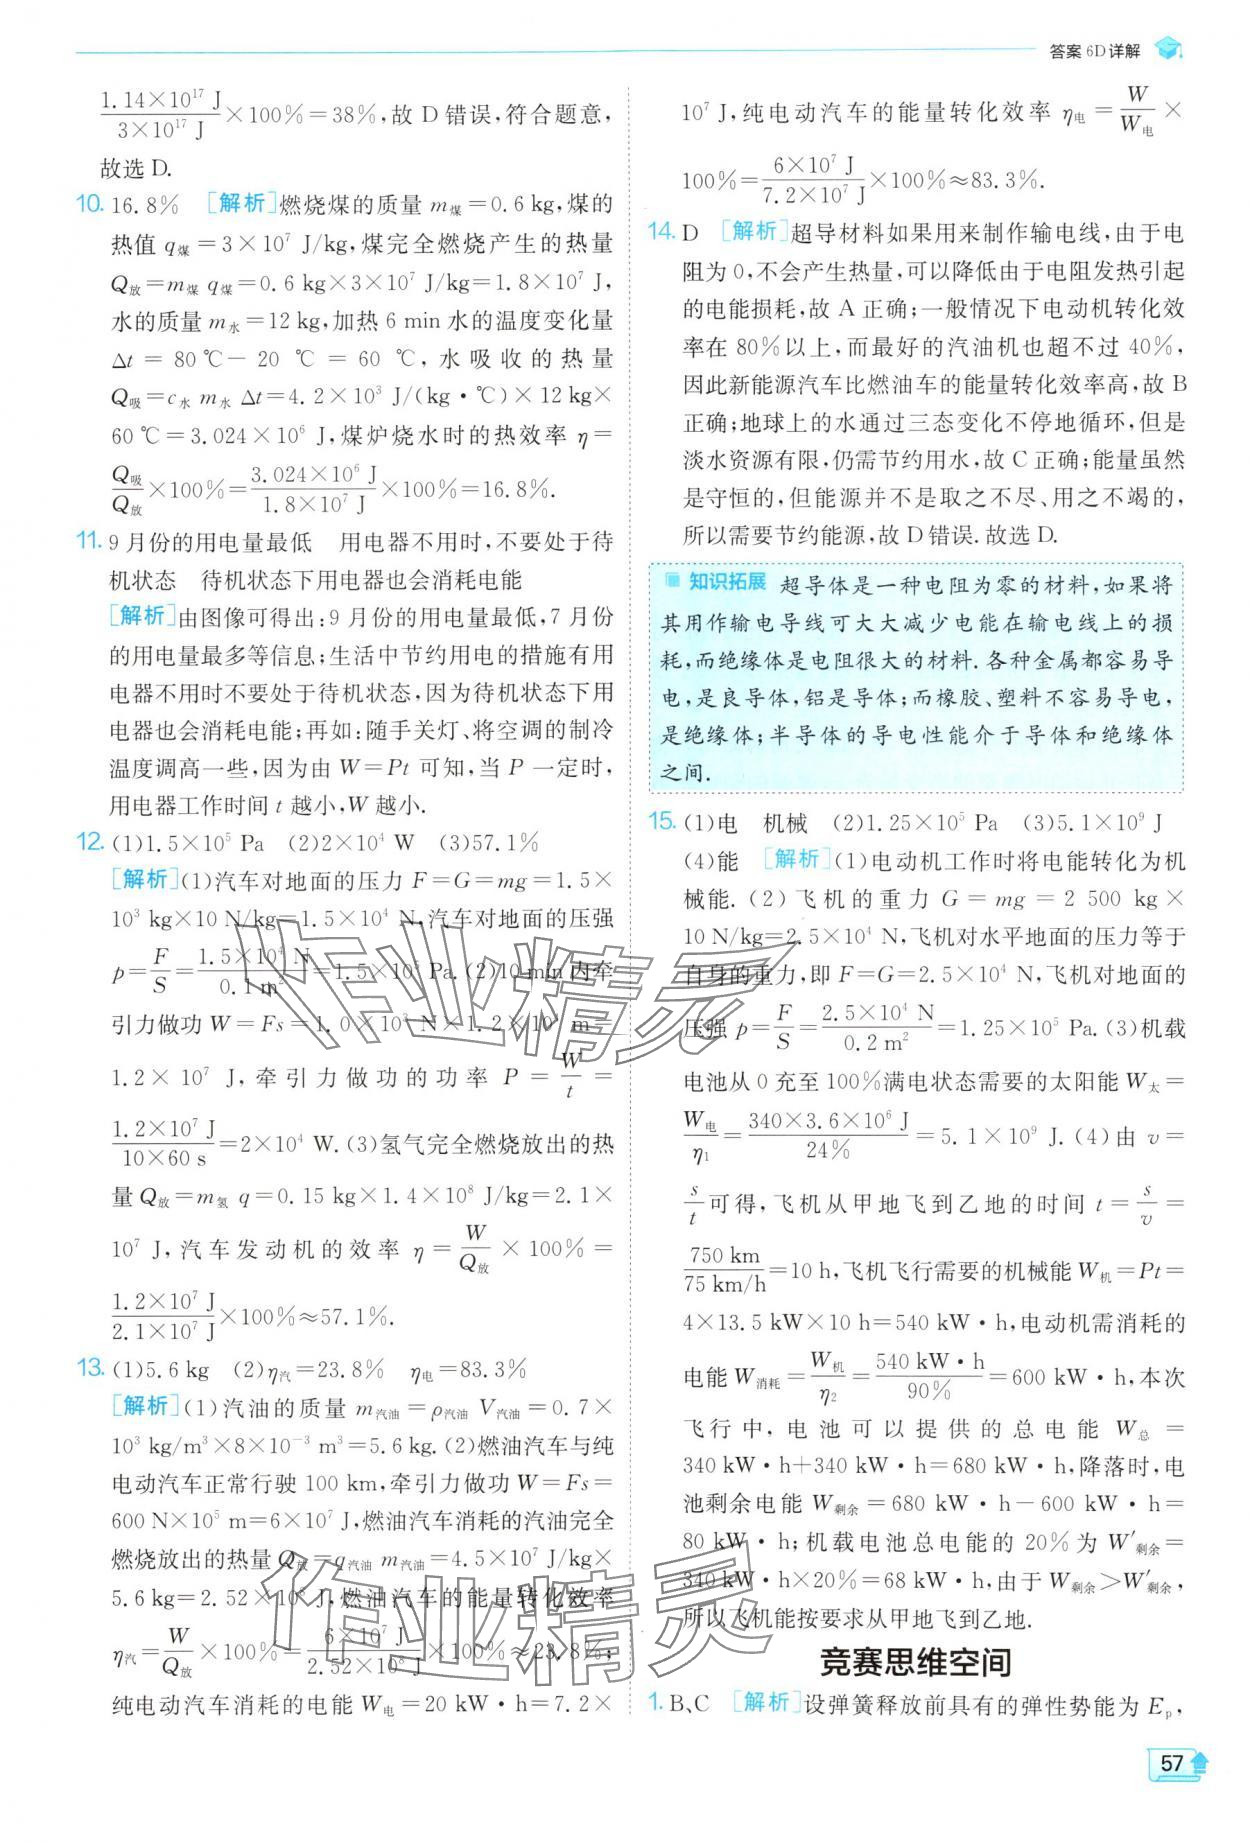 答案 6D详解
1.14×10¹⁷ J/3×10¹⁷ J×100%=38%,故 D 错误,符合题意,
故选 D.
10. 16.8% [解析]燃烧煤的质量 m煤=0.6 kg,煤的
热值 q煤=3×10⁷ J/kg,煤完全燃烧产生的热量
Q放=m煤 q煤=0.6 kg×3×10⁷ J/kg=1.8×10⁷ J,
水的质量 m水=12 kg,加热 6 min 水的温度变化量
Δt = 80 ℃- 20 ℃ = 60 ℃,水吸收的热量
Q吸=c水 m水 Δt=4.2×10³ J/(kg·℃)×12 kg×
60 ℃=3.024×10⁶ J,煤炉烧水时的热效率 η=
Q吸/Q放×100%=3.024×10⁶ J/1.8×10⁷ J=16.8%.
11. 9 月份的用电量最低 用电器不用时,不要处于待
机状态 待机状态下用电器也会消耗电能
[解析]由图像可得出:9 月份的用电量最低,7 月份
的用电量最多等信息;生活中节约用电的措施有用
电器不用时不要处于待机状态,因为待机状态下用
电器也会消耗电能;再如:随手关灯、将空调的制冷
温度调高一些,因为由 W=Pt 可知,当 P 一定时,
用电器工作时间 t 越小,W 越小.
12. (1)1.5×10⁵ Pa (2)2×10⁴ W (3)57.1%
[解析](1)汽车对地面的压力 F=G=mg=1.5×
10³ kg×10 N/kg=1.5×10⁴ N,汽车对地面的压强
p=F/S=1.5×10⁴ N/0.1 m²=1.5×10⁵ Pa.(2)10 min内牵
引力做功 W=Fs=1.0×10³ N×1.2×10⁴ m=
1.2× 10⁷ J,牵引力做功的功率 P = W/t =
1.2×10⁷ J/10×60 s=2×10⁴ W.(3)氢气完全燃烧放出的热
量 Q放=m氢 q=0.15 kg×1.4×10⁸ J/kg=2.1×
10⁷ J,汽车发动机的效率 η = W/Q放 × 100% =
1.2×10⁷ J/2.1×10⁷ J×100%≈57.1%.
13. (1)5.6 kg (2)η汽=23.8% η电=83.3%
[解析](1)汽油的质量 m汽油=ρ汽油 V汽油=0.7×
10³ kg/m³×8×10⁻³ m³=5.6 kg.(2)燃油汽车与纯
电动汽车正常行驶 100 km,牵引力做功 W=Fs=
600 N×10⁵ m=6×10⁷ J,燃油汽车消耗的汽油完全
燃烧放出的热量 Q放=q汽油 m汽油=4.5×10⁷ J/kg×
5.6 kg=2.52×10⁸ J,燃油汽车的能量转化效率
η汽=W/Q放×100%=6×10⁷ J/2.52×10⁸ J×100%≈23.8%;
纯电动汽车消耗的电能 W电=20 kW·h=7.2×
10⁷ J,纯电动汽车的能量转化效率 η电=W/W电×
100%=6×10⁷ J/7.2×10⁷ J×100%≈83.3%.
14. D [解析]超导材料如果用来制作输电线,由于电
阻为 0,不会产生热量,可以降低由于电阻发热引起
的电能损耗,故 A 正确;一般情况下电动机转化效
率在 80%以上,而最好的汽油机也超不过 40%,
因此新能源汽车比燃油车的能量转化效率高,故 B
正确;地球上的水通过三态变化不停地循环,但是
淡水资源有限,仍需节约用水,故 C 正确;能量虽然
是守恒的,但能源并不是取之不尽、用之不竭的,
所以需要节约能源,故 D 错误.故选 D.
知识拓展 超导体是一种电阻为零的材料,如果将
其用作输电导线可大大减少电能在输电线上的损
耗,而绝缘体是电阻很大的材料.各种金属都容易导
电,是良导体,铝是导体;而橡胶、塑料不容易导电,
是绝缘体;半导体的导电性能介于导体和绝缘体
之间.
15. (1)电 机械 (2)1.25×10⁵ Pa (3)5.1×10⁹ J
(4)能 [解析](1)电动机工作时将电能转化为机
械能.(2)飞机的重力 G = mg = 2 500 kg ×
10 N/kg=2.5×10⁴ N,飞机对水平地面的压力等于
自身的重力,即 F=G=2.5×10⁴ N,飞机对地面的
压强 p=F/S=2.5×10⁴ N/0.2 m²=1.25×10⁵ Pa.(3)机载
电池从 0 充至 100%满电状态需要的太阳能 W太=
W电/η₁=340×3.6×10⁶ J/24%=5.1×10⁹ J.(4)由 v=
s/t可得,飞机从甲地飞到乙地的时间 t=s/v=
750 km/75 km/h=10 h,飞机飞行需要的机械能 W机=Pt=
4×13.5 kW×10 h=540 kW·h,电动机需消耗的
电能 W消耗=W机/η₂=540 kW·h/90%=600 kW·h,本次
飞行中,电池可以提供的总电能 W总 =
340 kW·h+340 kW·h=680 kW·h,降落时,电
池剩余电能 W剩余=680 kW·h-600 kW·h=
80 kW·h;机载电池总电能的 20%为 W′剩余=
340 kW·h×20%=68 kW·h,由于 W剩余>W′剩余,
所以飞机能按要求从甲地飞到乙地.
竞赛思维空间
1. B、C [解析]设弹簧释放前具有的弹性势能为 Eₚ,
57
作业精灵
作业精灵